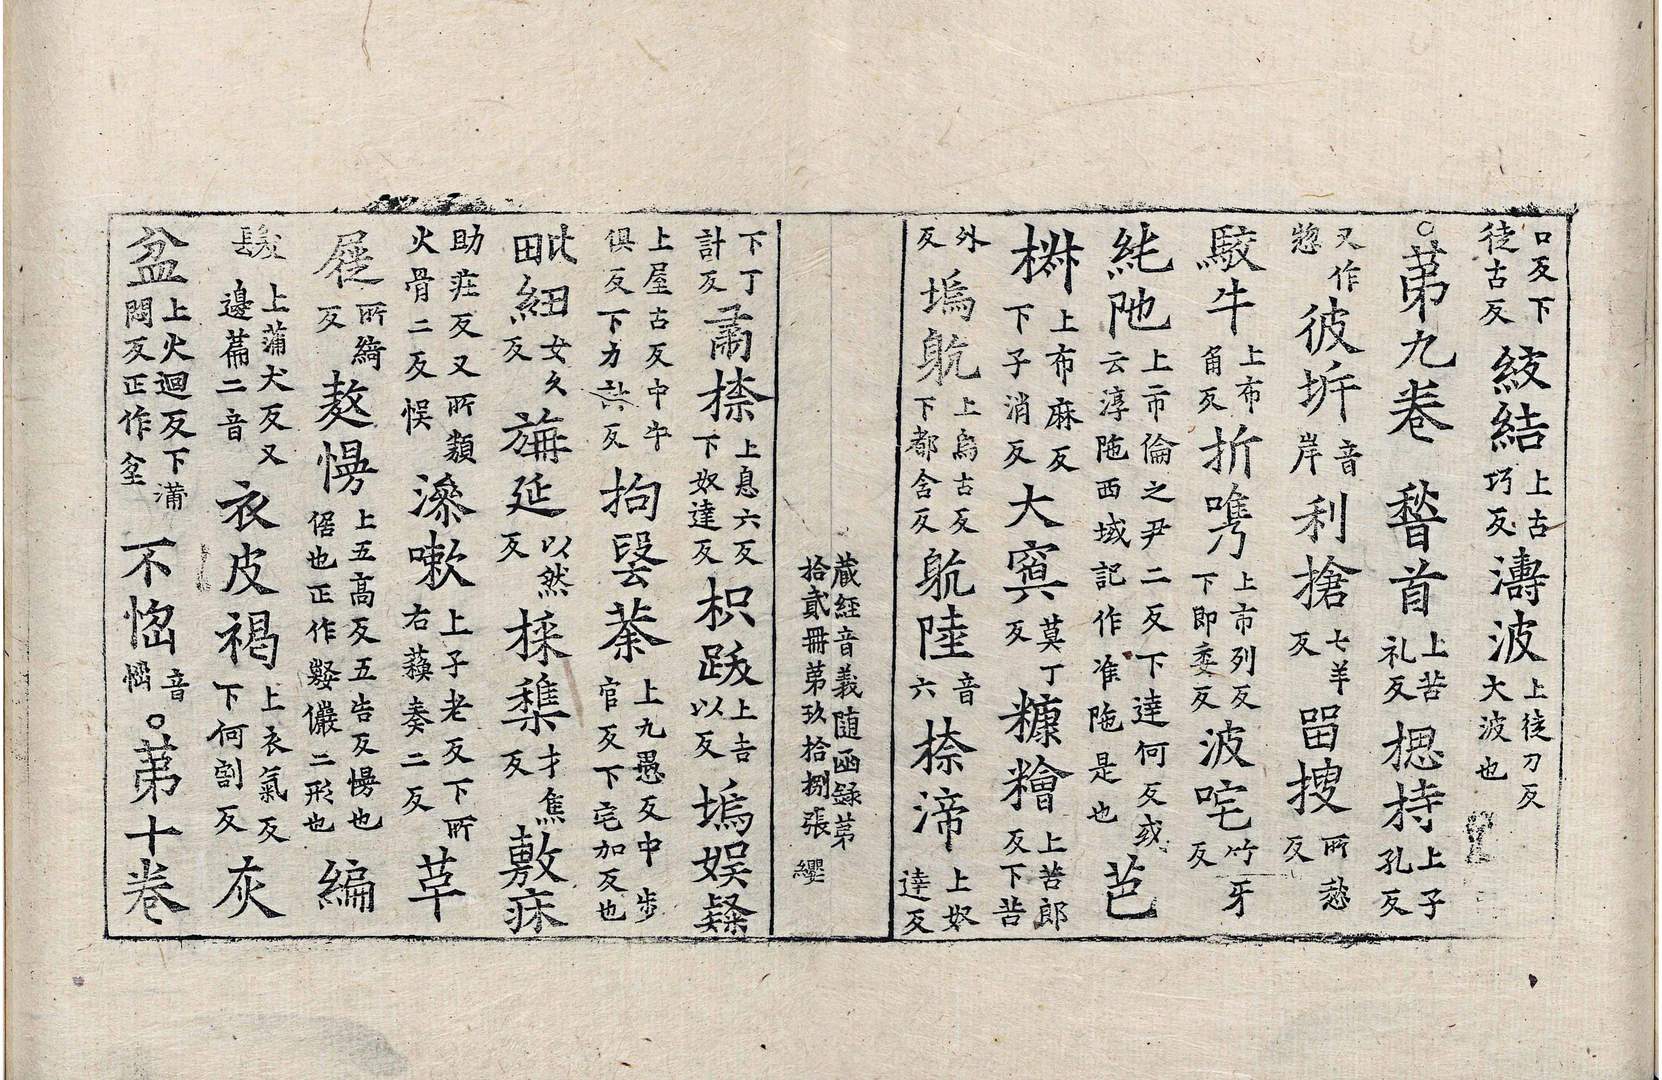 口反下徒古反 䋁結 上古巧反 濤波 上徒刀反大波也
○第九巻 䭫首 上苦礼反 揌持 上子孔反
又作惣 彼圻 音岸 利搶 七羊反 留搜 所愁反
駮牛 上布角反 折㗱 上市列反下即委反 波咤 竹牙反
純阤 上市倫之尹二反下達何反或云淳陁西域記作准陁是也 芭
上布麻反下子消反 大㝠 莫丁反 糠糩 上苦郎反下苦
外反 塢躭 上烏古反下都含反 躭陸 音六 㮏渧 上奴達反
藏經音義随函錄第拾貳冊第玖拾捌張 纓
下丁計反 㮏 上息六反下奴達反 枳䟦 上吉以反 塢娱
上屋古反中牛俱反下力計反 拘㲄荼 上九愚反中步官反下宅加反也
紐 女久反 延 以然反 才焦反 敷
助疰反又所類火骨二反悮 漱 上子老反下所右蘓奏二反 草
屣 所綺反 慢 上五高反五告反慢也倨也正作儼二形也 編
髮 上蒲犬反又邊萹二音 衣皮褐 上衣氣反下何割反 灰
盆 上火迴反下蒲悶反正作瓫 不惱 音惱 ○第十巻